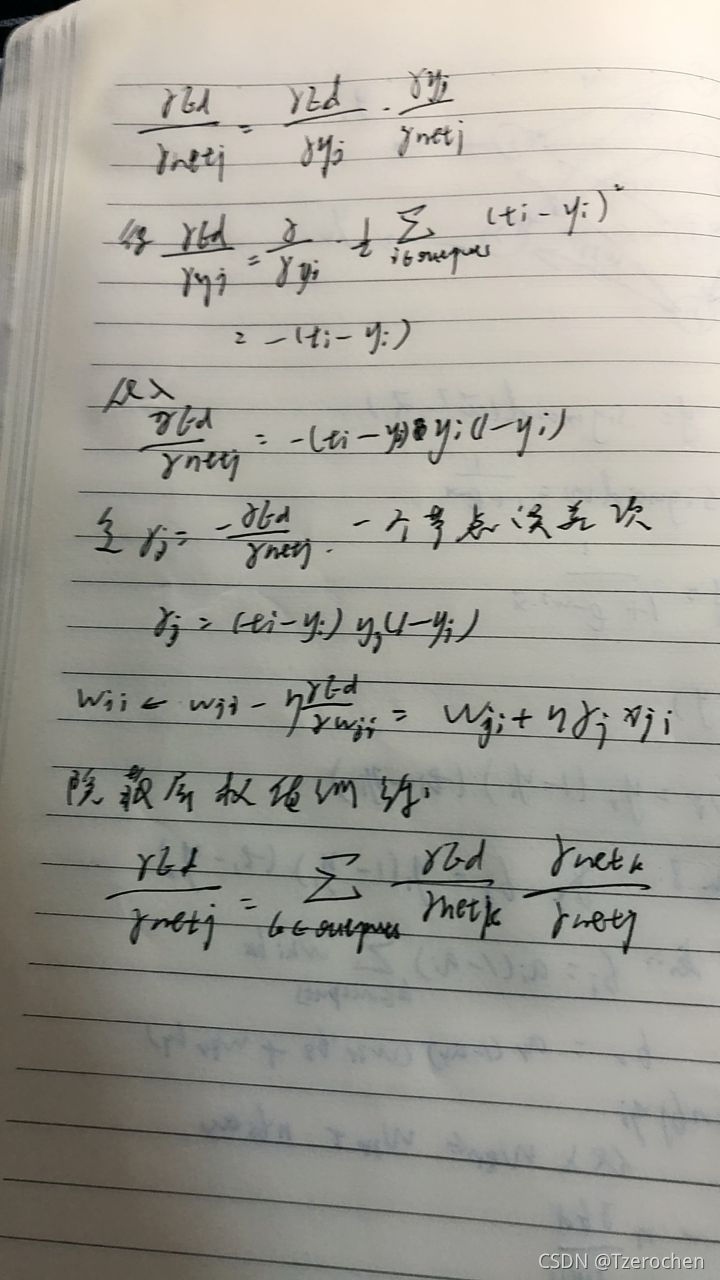 ∂Ed/∂netj = ∂Ed/∂yj · ∂yj/∂netj
∂Ed/∂yj = ∂/∂yj · 1/2 Σ i∈outputs (ti - yi)²
= -(ti - yi)
代入
∂Ed/∂netj = -(ti - yi) yi(1 - yi)
令 δj = -∂Ed/∂netj · 一个节点误差项
δj = (ti - yi) yj(1 - yj)
wji ← wji - η ∂Ed/∂wji = wji + ηδj xji
隐藏层权值训练:
∂Ed/∂netj = Σ outputs ∂Ed/∂netk ∂netk/∂netj
CSDN @Tzerochen